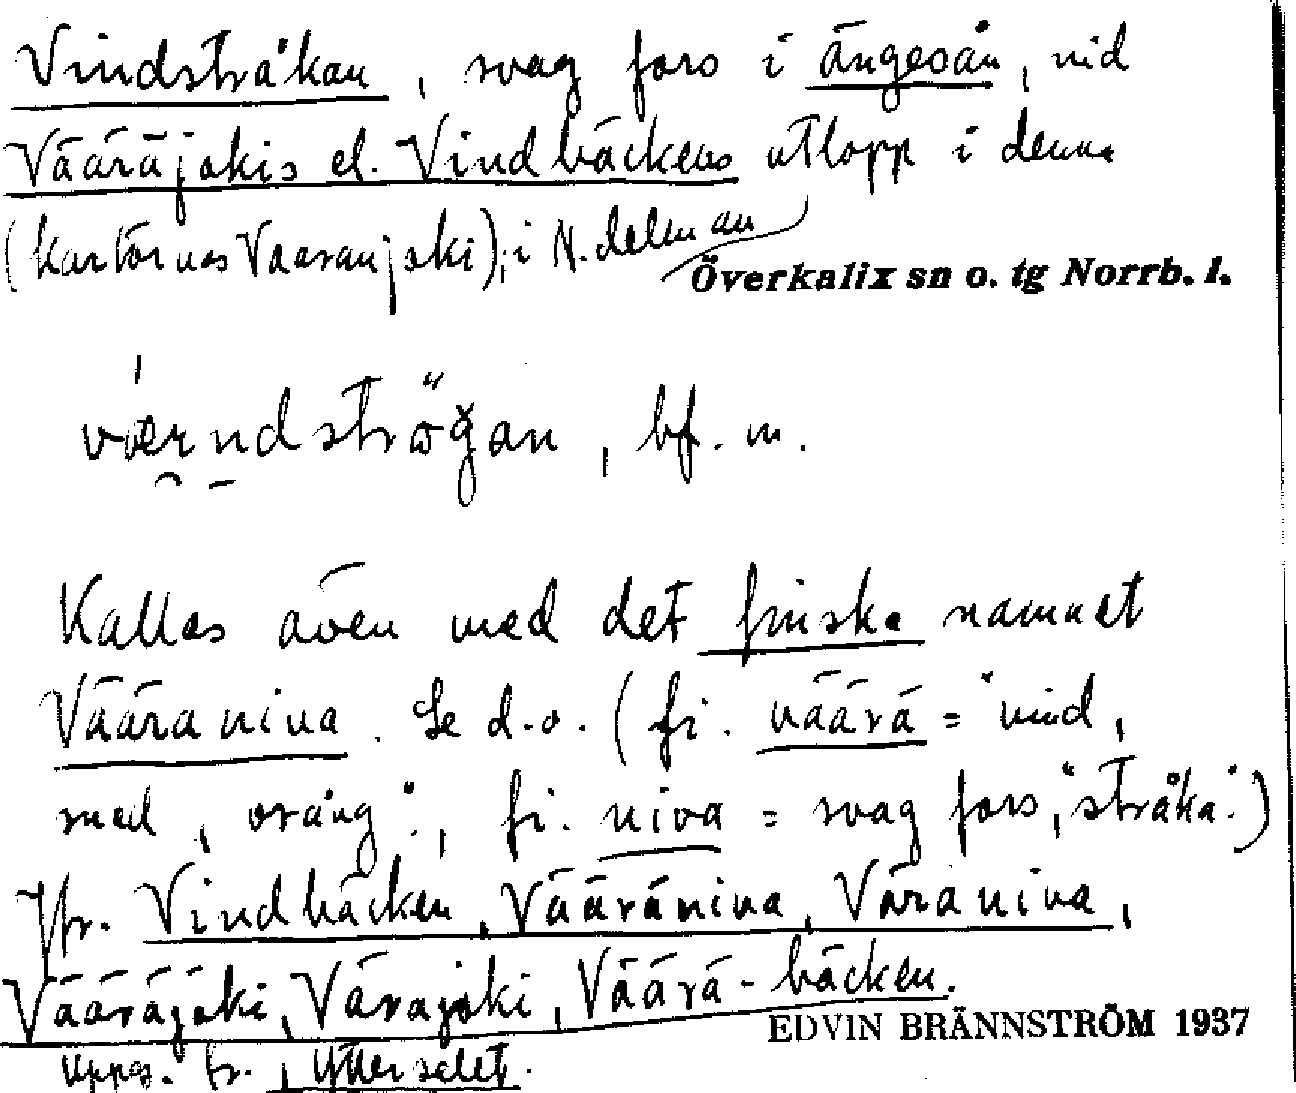 Vindstråkan, svag fors i ängesån, vid
Vääräjokis el. Vindbäckens utlopp i denna
(kartornas Vaaranjoki); i N. delen av
Överkalix sn o. tg Norrb. l.
værndströgan, bf. m.
Kallas även med det finska namnet
Vääräniva. Se d.o. (fi. väärä = "vind,
sned, vrång", fi. niva = svag fors, "stråka".)
Jfr. Vindbäcken, Vääräniva, Väraniva,
Vääräjoki, Värajoki, Väärä-bäcken.
EDVIN BRÄNNSTRÖM 1937
Uppg. fr. Ytterselet.